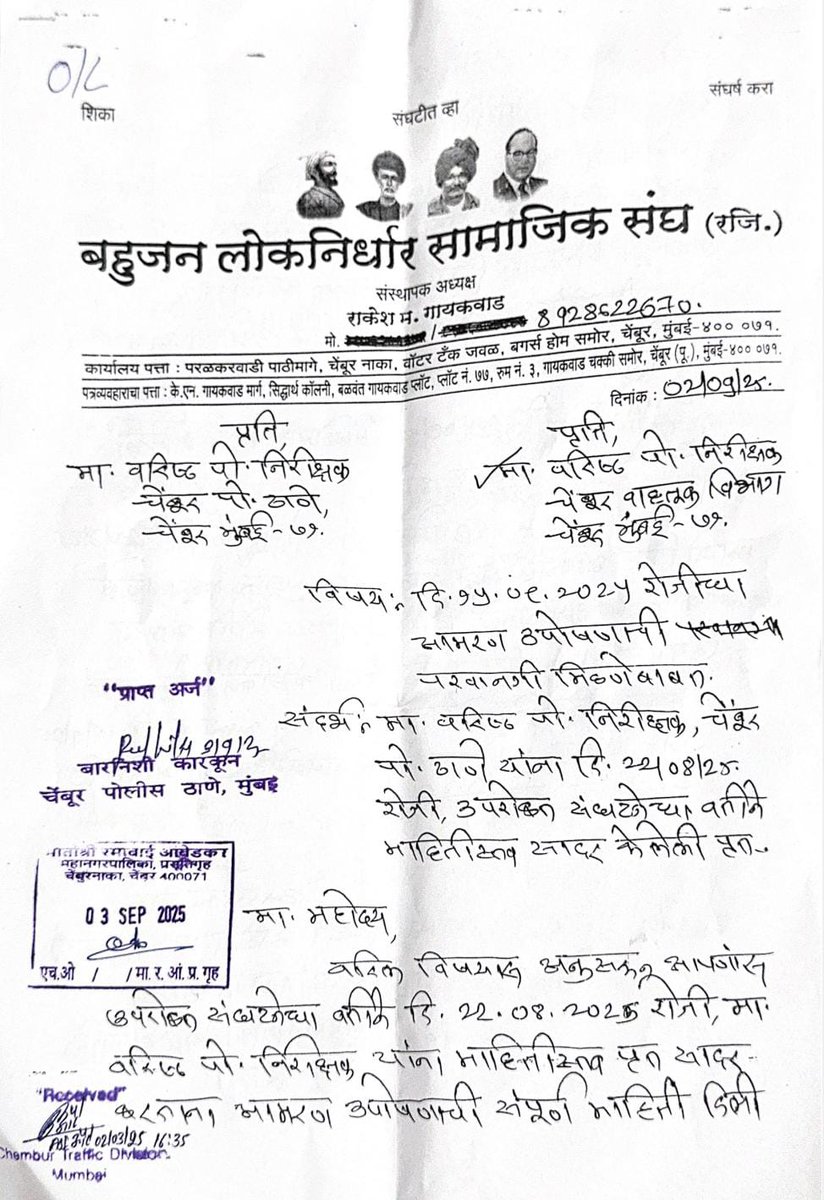 O/C
शिका
संघटीत व्हा
संघर्ष करा
बहुजन लोकनिर्धार सामाजिक संघ (रजि.)
संस्थापक अध्यक्ष
राकेश म. गायकवाड
मो. / 8928622670.
कार्यालय पत्ता : परळकरवाडी पाठीमागे, चेंबूर नाका, वॉटर टँक जवळ, बगर्स होम समोर, चेंबूर, मुंबई-४०० ०७१.
पत्रव्यवहाराचा पत्ता : के.एन. गायकवाड मार्ग, सिद्धार्थ कॉलनी, बळवंत गायकवाड प्लॉट, प्लॉट नं. ७७, रुम नं. ३, गायकवाड चक्की समोर, चेंबूर (पू.), मुंबई-४०० ०७१.
दिनांक : 02/09/25.
प्रति,
मा. वरिष्ठ पो. निरीक्षक
चेंबूर पो. ठाणे,
चेंबूर मुंबई - ७१.
प्रति,
मा. वरिष्ठ पो. निरीक्षक
चेंबूर वाहतूक विभाग
चेंबूर मुंबई - ७१.
विषय : दि. १५.०९.2025 रोजीच्या
आमरण उपोषणाची
परवानगी मिळणेबाबत.
संदर्भ : मा. वरिष्ठ पो. निरीक्षक, चेंबूर
पो. ठाणे यांना दि. 22/08/25.
रोजी, उपरोक्त संघटनेच्या वतीने
माहितीस्तव सादर केलेली प्रत.
"प्राप्त अर्ज"
बारनिशी कारकून
चेंबूर पोलीस ठाणे, मुंबई
मातोश्री रमाबाई आंबेडकर
महानगरपालिका, प्रसूतिगृह
चेंबुरनाका, चेंबर 400071
03 SEP 2025
एच.ओ / /मा.र.आं.प्र.गृह
मा. महोदय,
वरिल विषयास अनुसरून आपणांस
उपरोक्त संघटनेच्या वतीने दि. 22.08.2025 रोजी, मा.
वरिष्ठ पो. निरीक्षक यांना माहितीस्तव प्रत सादर
करताना आमरण उपोषणाची संपूर्ण माहिती दिली
"Received"
02/03/25 16:35
Chembur Traffic Division
Mumbai